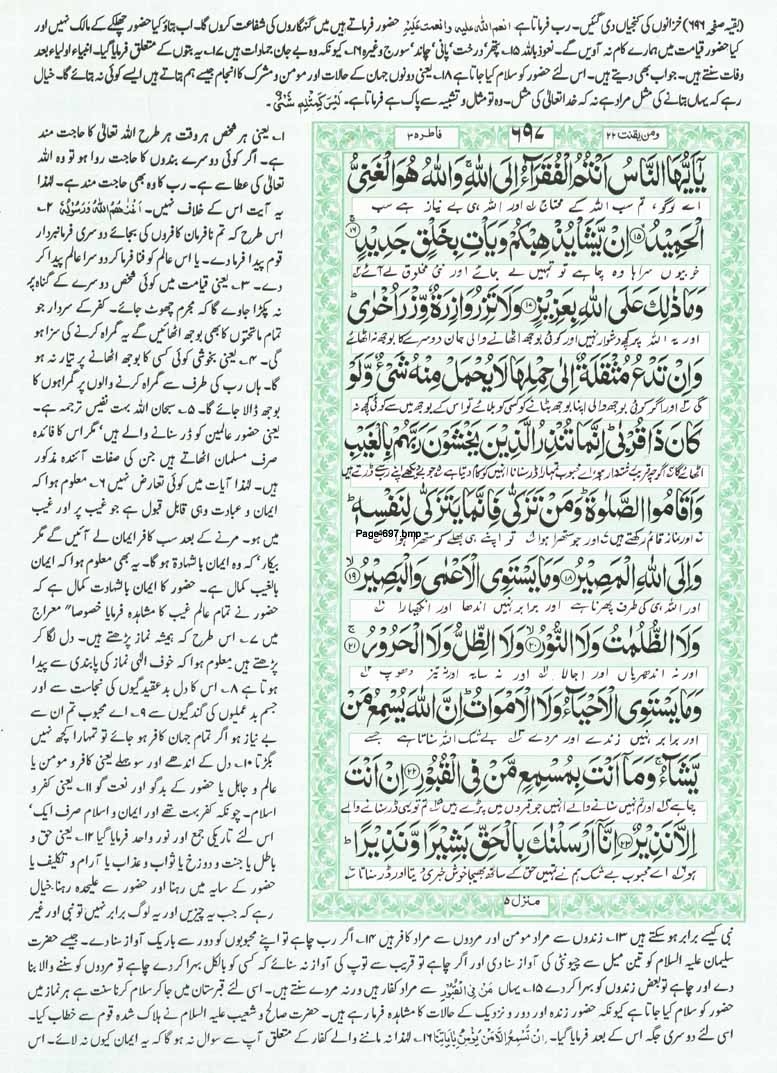 (بقیہ صفحہ ۶۹۶) خزانوں کی کنجیاں دی گئیں۔ رب فرماتا ہے۔ انعم اللہ علیہ وانعمت علیہ حضور فرماتے ہیں میں گنہگاروں کی شفاعت کروں گا۔ اب بتاؤ کیا حضور چھلکے کے مالک نہیں اور
کیا حضور قیامت میں ہمارے کام نہ آویں گے۔ نعوذ باللہ ۱۵۔ پتھر' درخت' پانی' چاند' سورج وغیرہ ۱۶۔ کیونکہ وہ بے جان جمادات ہیں ۱۷۔ یہ بتوں کے متعلق فرمایا گیا۔ انبیاء اولیاء بعد
وفات سنتے ہیں۔ جواب بھی دیتے ہیں۔ اس لئے حضور کو سلام کیا جاتا ہے ۱۸۔ یعنی دونوں جہان کے حالات اور مومن و مشرک کا انجام جیسے ہم بتاتے ہیں ایسے کوئی نہ بتائے گا۔ خیال
رہے کہ یہاں بتانے کی مثل مراد ہے نہ کہ خدا تعالیٰ کی مثل۔ وہ تو مثال و تشبیہ سے پاک ہے فرماتا ہے۔ لَیْسَ كَمِثْلِهٖ شَیْءٌ۔
ومن یقنت ۲۲
۶۹۷
فاطر ۳۵
يٰۤاَيُّهَا النَّاسُ اَنْتُمُ الْفُقَرَآءُ اِلَى اللّٰهِۚ وَاللّٰهُ هُوَ الْغَنِيُّ
اے لوگو، تم سب اللہ کے محتاج اور اللہ ہی بے نیاز ہے سب
الْحَمِيْدُ ۱۵ اِنْ يَّشَاْ يُذْهِبْكُمْ وَيَاْتِ بِخَلْقٍ جَدِيْدٍ ۱۶
خوبیوں سراہا وہ چاہے تو تمہیں لے جائے اور نئی مخلوق لے آئے
وَمَا ذٰلِكَ عَلَى اللّٰهِ بِعَزِيْزٍ ۱۷ وَلَا تَزِرُ وَازِرَةٌ وِّزْرَ اُخْرٰى
اور یہ اللہ پر کچھ دشوار نہیں اور کوئی بوجھ اٹھانے والی جان دوسرے کا بوجھ نہ اٹھائے
وَاِنْ تَدْعُ مُثْقَلَةٌ اِلٰى حِمْلِهَا لَا يُحْمَلْ مِنْهُ شَيْءٌ وَّلَوْ
گی اور اگر کوئی بوجھ والی اپنا بوجھ بٹانے کو کسی کو بلائے تو اس کے بوجھ میں سے کوئی کچھ نہ
كَانَ ذَا قُرْبٰى اِنَّمَا تُنْذِرُ الَّذِيْنَ يَخْشَوْنَ رَبَّهُمْ بِالْغَيْبِ
اٹھائے گا اگرچہ قریب رشتہ دار ہو اے محبوب تمہارا ڈر سنانا انہیں کو کام دیتا ہے جو بے دیکھے اپنے رب سے ڈرتے ہیں
وَاَقَامُوا الصَّلٰوةَ وَمَنْ تَزَكّٰى فَاِنَّمَا يَتَزَكّٰى لِنَفْسِهٖ
اور نماز قائم رکھتے ہیں اور جو ستھرا ہوا تو اپنے ہی بھلے کو ستھرا ہوا
Page-697.bmp
وَاِلَى اللّٰهِ الْمَصِيْرُ ۱۸ وَمَا يَسْتَوِي الْاَعْمٰى وَالْبَصِيْرُ ۱۹
اور اللہ ہی کی طرف پھرنا ہے اور برابر نہیں اندھا اور انکھیارا
وَلَا الظُّلُمٰتُ وَلَا النُّوْرُ ۲۰ وَلَا الظِّلُّ وَلَا الْحَرُوْرُ ۲۱
اور نہ اندھیریاں اور اجالا اور نہ سایہ اور نہ تیز دھوپ
وَمَا يَسْتَوِي الْاَحْيَآءُ وَلَا الْاَمْوَاتُ اِنَّ اللّٰهَ يُسْمِعُ مَنْ
اور برابر نہیں زندے اور مردے بے شک اللہ سناتا ہے جسے
يَّشَآءُ وَمَاۤ اَنْتَ بِمُسْمِعٍ مَّنْ فِي الْقُبُوْرِ ۲۲ اِنْ اَنْتَ
چاہے اور تم نہیں سنانے والے انہیں جو قبروں میں پڑے ہیں تم تو یہی ڈر سنانے والے
اِلَّا نَذِيْرٌ ۲۳ اِنَّاۤ اَرْسَلْنٰكَ بِالْحَقِّ بَشِيْرًا وَّنَذِيْرًا
ہو اے محبوب بے شک ہم نے تمہیں حق کے ساتھ بھیجا خوش خبری دیتا اور ڈر سناتا
منزل ۵
۱۔ یعنی ہر شخص ہر وقت ہر طرح اللہ تعالیٰ کا حاجت مند
ہے۔ اگر کوئی دوسرے بندوں کا حاجت روا ہو تو وہ اللہ
تعالیٰ کی عطا سے ہے۔ رب کا وہ بھی حاجت مند ہے۔ لہٰذا
یہ آیت اس کے خلاف نہیں۔ اَغْنٰهُمُ اللّٰهُ وَرَسُوْلُهٗ ۲۔
اس طرح کہ تم نافرمان کافروں کی بجائے دوسری فرمانبردار
قوم پیدا فرما دے۔ یا اس عالم کو فنا فرما کر دوسرا عالم پیدا کر
دے۔ ۳۔ یعنی قیامت میں کوئی شخص دوسرے کے گناہ پر
نہ پکڑا جاوے گا کہ مجرم چھوٹ جائے۔ کفر کے سردار جو
تمام ماتحتوں کا بھی بوجھ اٹھائیں گے یہ گمراہ کرنے کی سزا ہو
گی۔ ۴۔ یعنی بخوشی کوئی کسی کا بوجھ اٹھانے پر تیار نہ ہو
گا۔ ہاں رب کی طرف سے گمراہ کرنے والوں پر گمراہوں کا
بوجھ ڈالا جائے گا۔ ۵۔ سبحان اللہ بہت نفیس ترجمہ ہے۔
یعنی حضور عالمین کو ڈر سنانے والے ہیں' مگر اس کا فائدہ
صرف مسلمان اٹھاتے ہیں جن کی صفات آئندہ مذکور
ہیں۔ لہٰذا آیات میں کوئی تعارض نہیں ۶۔ معلوم ہوا کہ
ایمان و عبادت وہی قابل قبول ہے جو غیب پر اور غیب
میں ہو۔ مرنے کے بعد سب کافر ایمان لے آئیں گے مگر
بیکار' کہ وہ ایمان بالشہادۃ ہو گا۔ یہ بھی معلوم ہوا کہ ایمان
بالغیب کمال ہے۔ حضور کا ایمان بالشہادت کمال ہے کہ
حضور نے تمام عالم غیب کا مشاہدہ فرمایا خصوصاً معراج
میں ۷۔ اس طرح کہ ہمیشہ نماز پڑھتے ہیں۔ دل لگا کر
پڑھتے ہیں معلوم ہوا کہ خوف الٰہی نماز کی پابندی سے پیدا
ہوتا ہے ۸۔ اس کا دل بد عقیدگیوں کی نجاست سے اور
جسم بد عملیوں کی گندگیوں سے ۹۔ اے محبوب تم ان سے
بے نیاز ہو اگر تمام جہان کافر ہو جائے تو تمہارا کچھ نہیں
بگڑتا ۱۰۔ دل کے اندھے اور سوجھلے یعنی کافر و مومن یا
عالم و جاہل یا حضور کے بدگو اور نعت گو ۱۱۔ یعنی کفر و
اسلام۔ چونکہ کفر بہت تھے اور ایمان و اسلام صرف ایک'
اس لئے تاریکی جمع اور نور واحد فرمایا گیا ۱۲۔ یعنی حق و
باطل یا جنت و دوزخ یا ثواب و عذاب یا آرام و تکلیف یا
حضور کے سایہ میں رہنا اور حضور سے علیحدہ رہنا۔ خیال
رہے کہ جب یہ چیزیں اور یہ لوگ برابر نہیں تو نبی اور غیر
نبی کیسے برابر ہو سکتے ہیں ۱۳۔ زندوں سے مراد مومن اور مردوں سے مراد کافر ہیں ۱۴۔ اگر رب چاہے تو اپنے محبوبوں کو دور سے باریک آواز سنا دے۔ جیسے حضرت
سلیمان علیہ السلام کو تین میل سے چیونٹی کی آواز سنا دی اور اگر چاہے تو قریب سے توپ کی آواز نہ سنائے کہ کسی کو بالکل بہرا کر دے چاہے تو مردوں کو سننے والا بنا
دے اور چاہے تو بعض زندوں کو بہرا کر دے ۱۵۔ یہاں مَنْ فِی الْقُبُوْرِ سے مراد کفار ہیں ورنہ مردے سنتے ہیں۔ اسی لئے قبرستان میں جا کر سلام کرنا سنت ہے ہر نماز میں
حضور کو سلام کیا جاتا ہے کیونکہ حضور زندہ اور دور و نزدیک کے حالات کا مشاہدہ فرما رہے ہیں۔ حضرت صالح و شعیب علیہ السلام نے ہلاک شدہ قوم سے خطاب کیا۔
اسی لئے دوسری جگہ اس کے بعد فرمایا گیا۔ اِنْ تُسْمِعُ اِلَّا مَنْ یُّؤْمِنُ بِاٰیٰتِنَا ۱۶۔ لہٰذا نہ ماننے والے کفار کے متعلق آپ سے سوال نہ ہو گا کہ یہ ایمان کیوں نہ لائے۔ اس